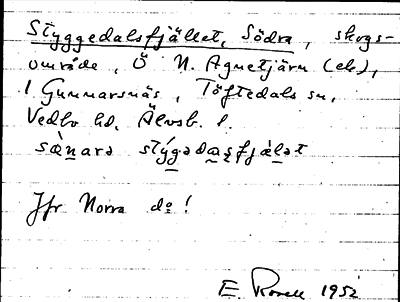 Styggedalsfjället, Södra, skogs-
område, Ö N. Agnetjärn (ek),
I Gunnarsnäs, Töftedals sn,
Vedbo hd, Älvsb. l.
sæ̀nara stýgedasfjælet
Jfr Norra do!
E. 1952